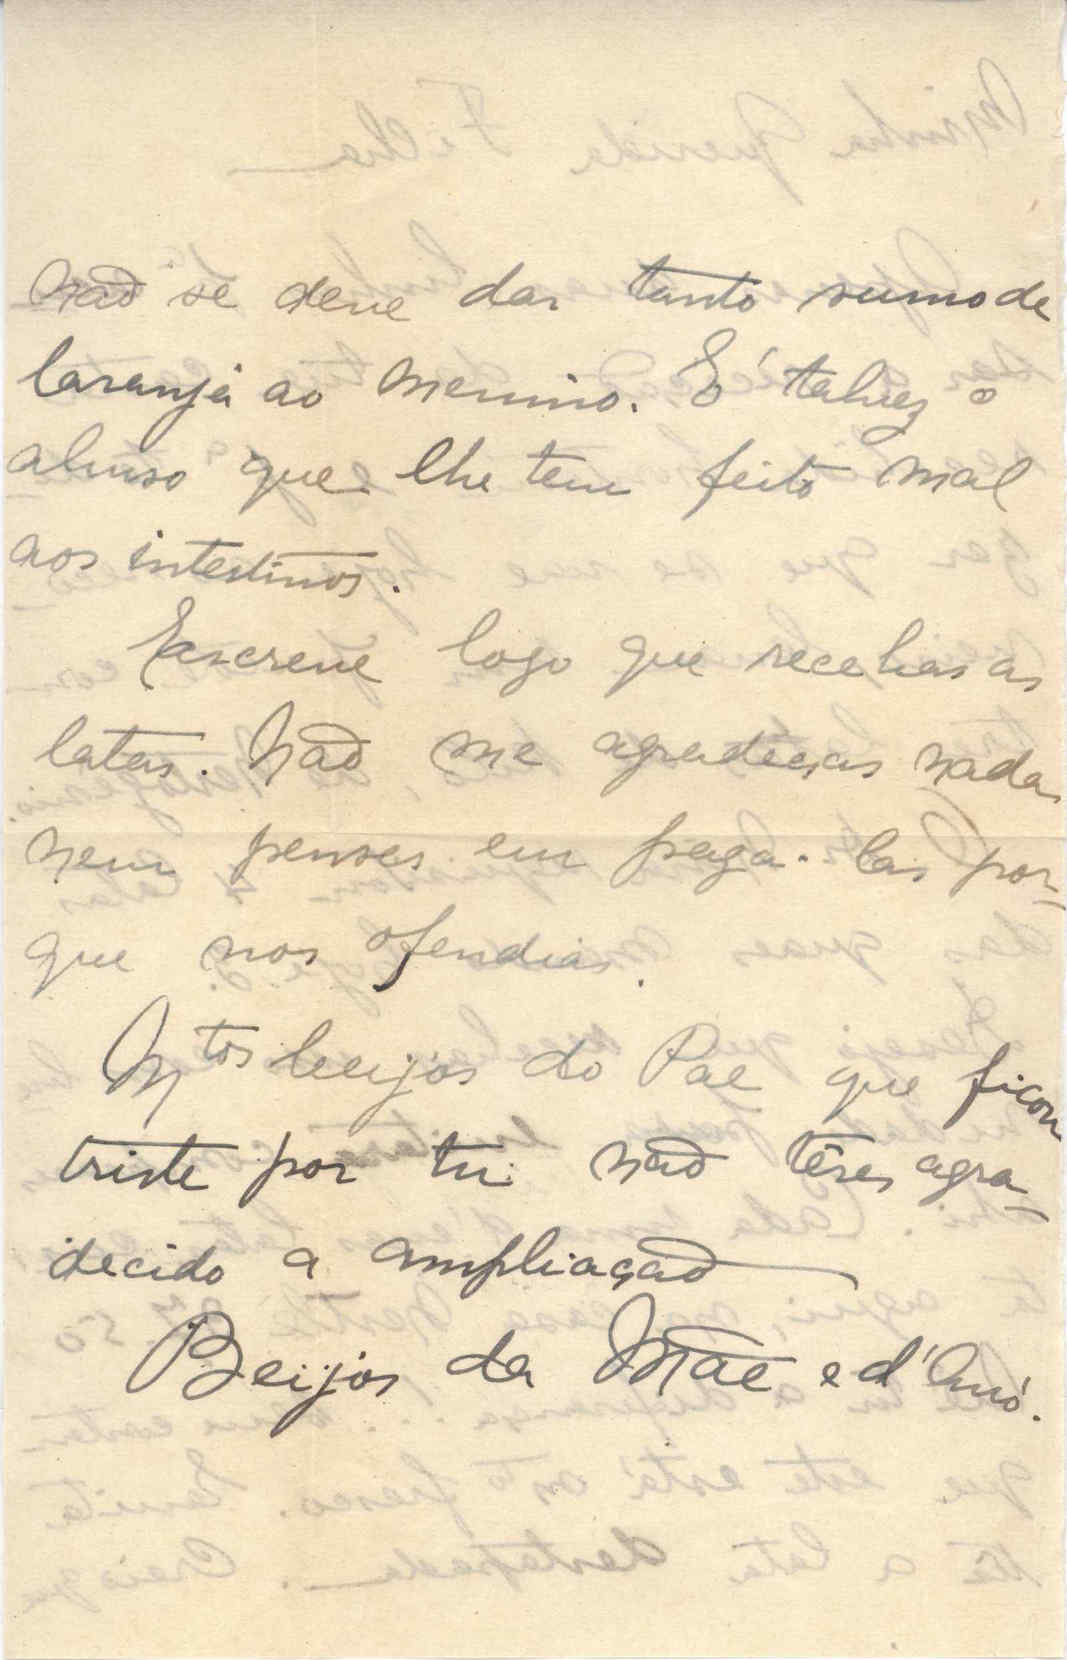 não se deve dar tanto sumo de
laranja ao menino. É talvez o
abuso que lhe tem feito mal
aos intestinos.
Escreve logo que recebas as
latas. Não me agradeças nada
nem penses em paga-las por-
que nos ofendias.
Mtos beijos do Pae que ficou
triste por tu não têres agra-
decido a ampliação
Beijos da Mãe e d'Avó.